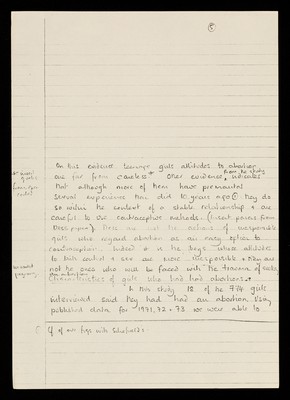 On this evidence teenage girls attitudes to abortion
are far from careless. Other evidence, from the study indicates
that although more of them have premarital
sexual experience than did 10 years ago they do
so within the context of a stable relationship & are
careful to use contraceptive methods. (Insert paras from
These are not the actions of irresponsible
girls who regard abortion as an easy option to
contraception. Indeed it is the boys whose attitudes
to birth control & sex are more irresponsible & they are
not the ones who will be faced with the trauma of
Characteristics of girls who had had abortions.
In this study 12 of the 774 girls
interviewed said they had had an abortion. Using
published data for 1971, 72 & 73 we were able to
Cf of our figs. with Schofield's